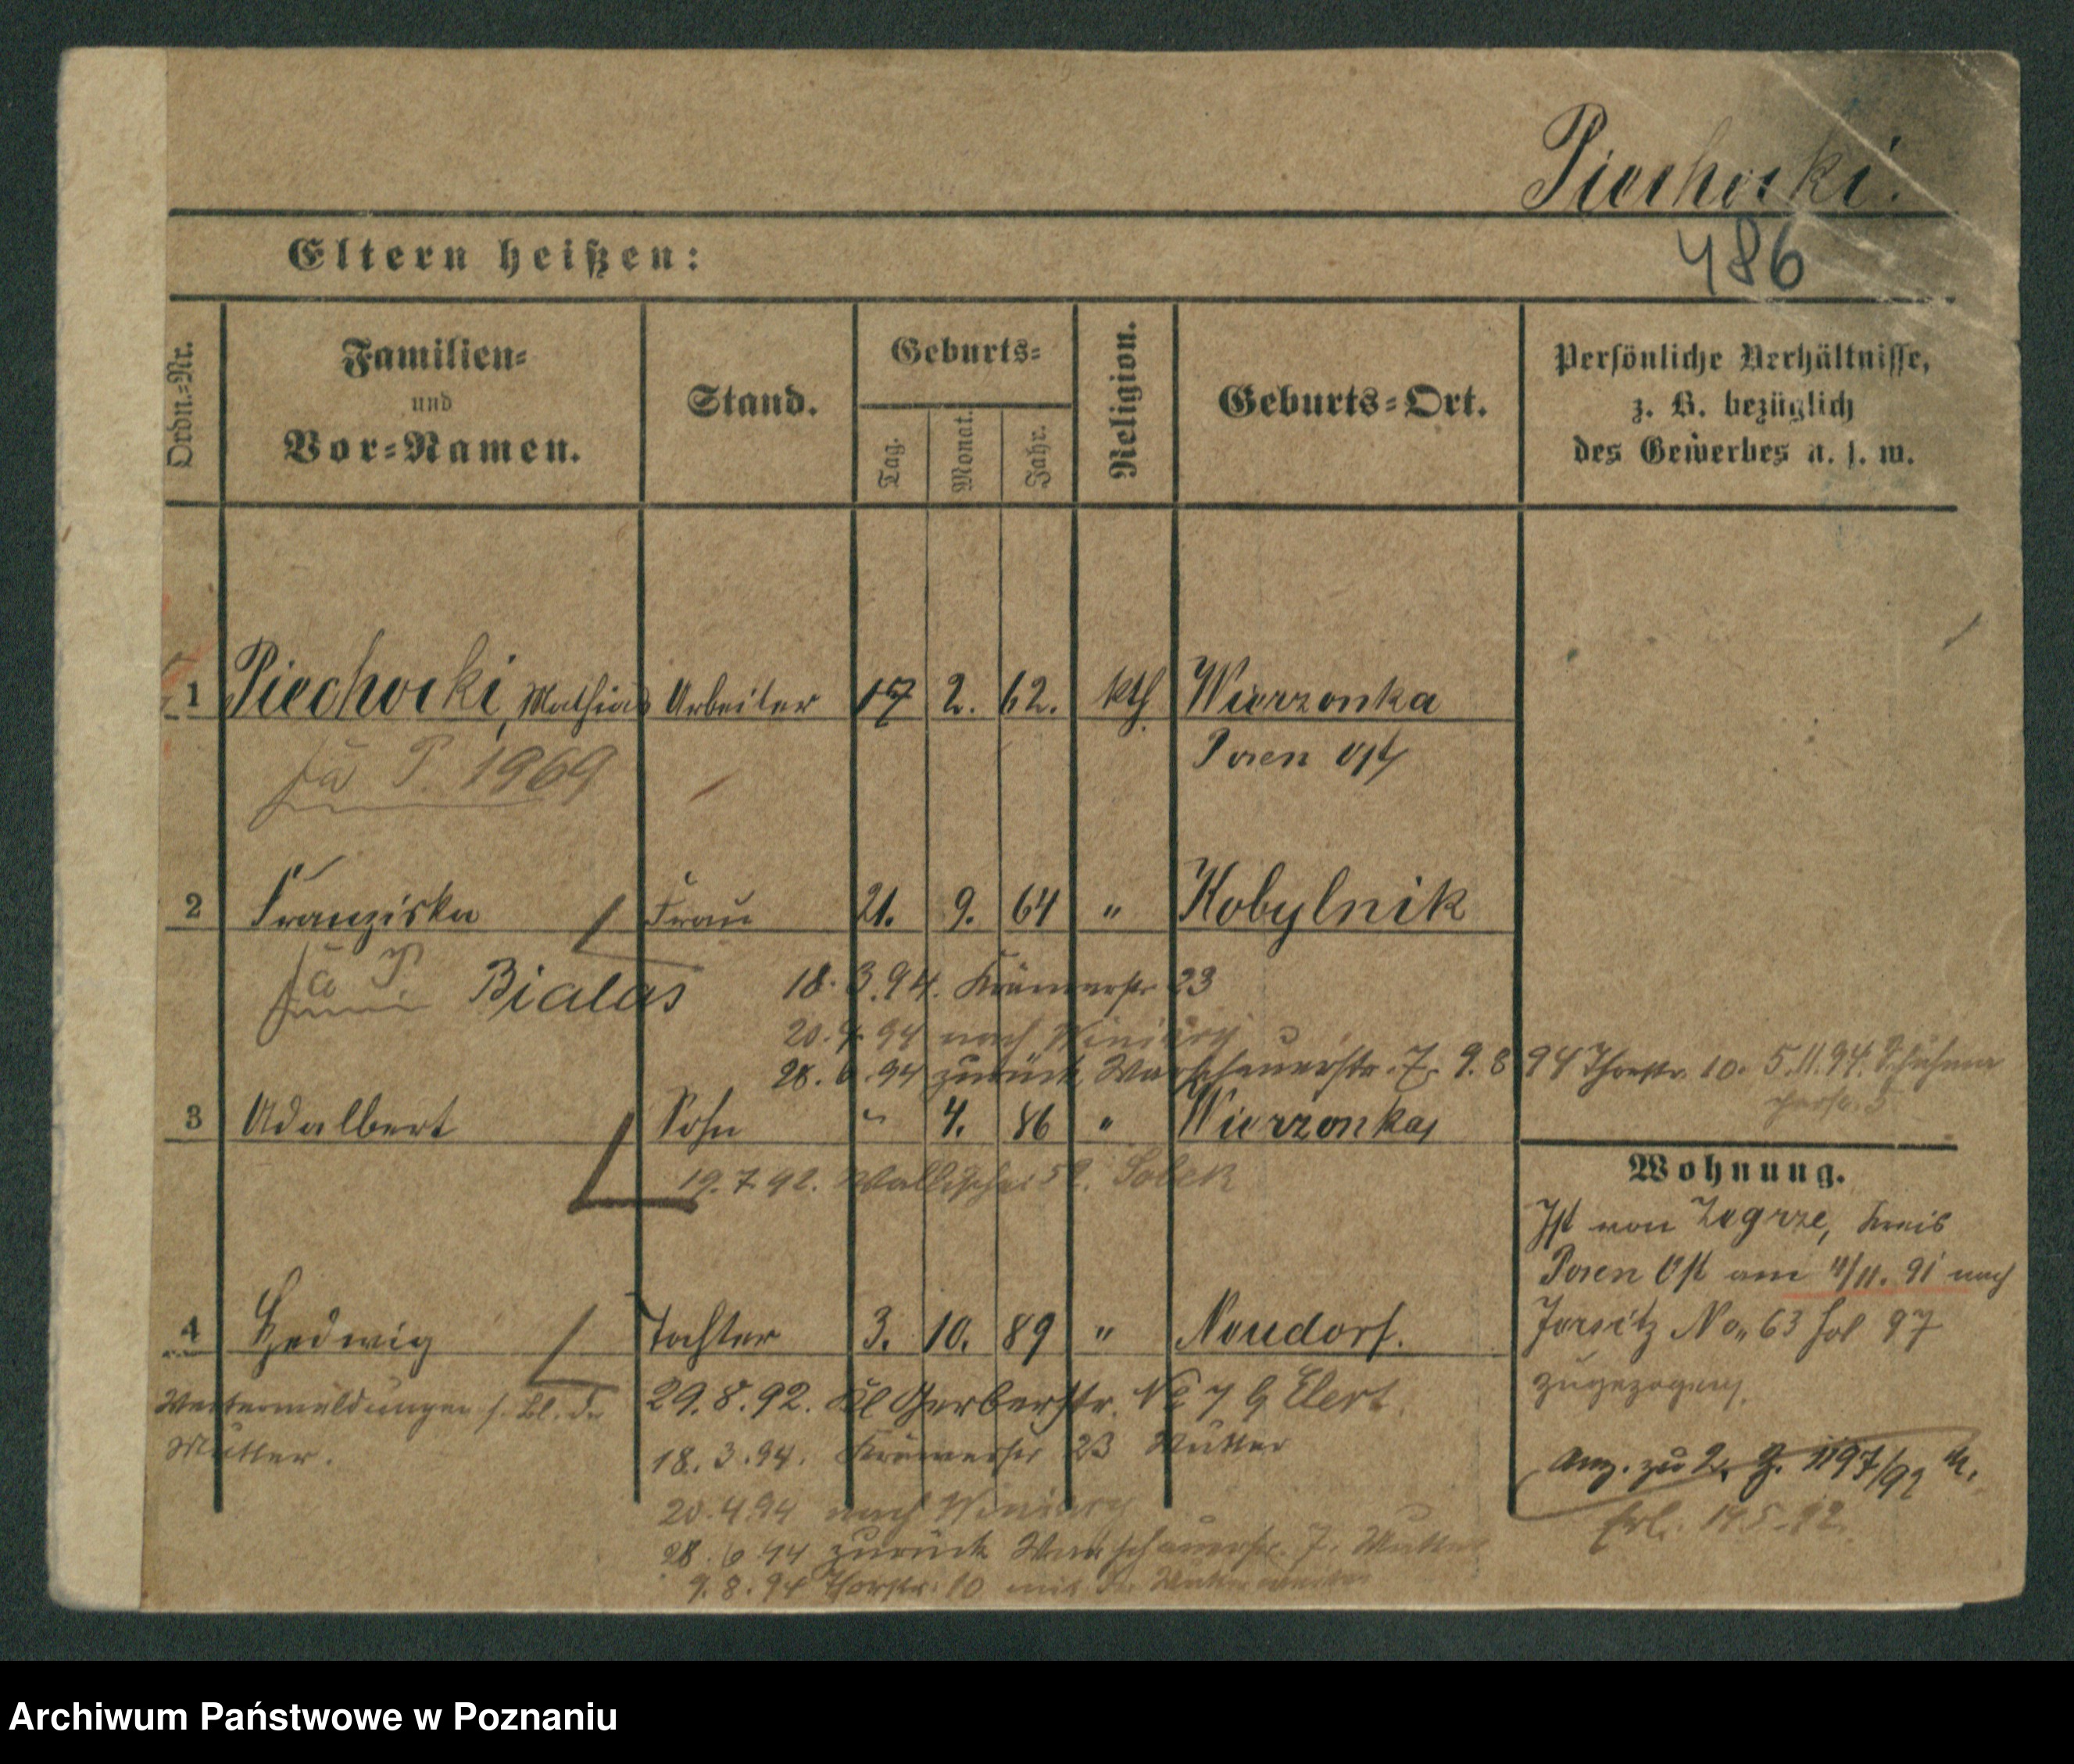 Piechocki.
486
Eltern heißen:
Ordn.=Nr.
Familien=
und
Vor=Namen.
Stand.
Geburts=
Tag.
Monat.
Jahr.
Religion.
Geburts=Ort.
Persönliche Verhältnisse,
z. B. bezüglich
des Gewerbes u. s. w.
1 Piechocki, Mathias Arbeiter 17 2. 62. kth. Wierzonka
P. 1969 Posen Ost
2 Franziska Frau 21. 9. 64 " Kobylnik
Bialas 18. 3. 94. Krämerstr 23
20. 4. 94 nach Winiary
28. 6. 94 zurück Warschauerstr. 7. 9. 8 94 Thorstr. 10. 5. 11. 94.
3 Adalbert Sohn 4. 86 " Wierzonka
19. 7. 92. Wallischei Sobek
Wohnung.
Ist von Zagrze, Kreis
Posen Ost am 4/11. 91 nach
Jersitz No. 63 fol 97
zugezogen.
4 Hedwig Tochter 3. 10. 89 " Neudorf.
Weitermeldungen s. Bl. der
Mutter.
29. 8. 92. Kl Gerberstr. No 7 b Elert.
18. 3. 94. Krämerstr 23 Mutter
20. 4. 94 nach Winiary
28. 6. 94 zurück Warschauerstr. 7. Mutter
9. 8. 94 Thorstr. 10 mit der Mutter
Anz. zu 2. 1197/92
19.5.92.
Archiwum Państwowe w Poznaniu